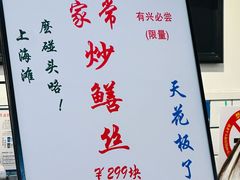 家常炒鳝丝
¥299块
有兴必尝
(限量)
天花板了
麽碰头咯！
上海滩